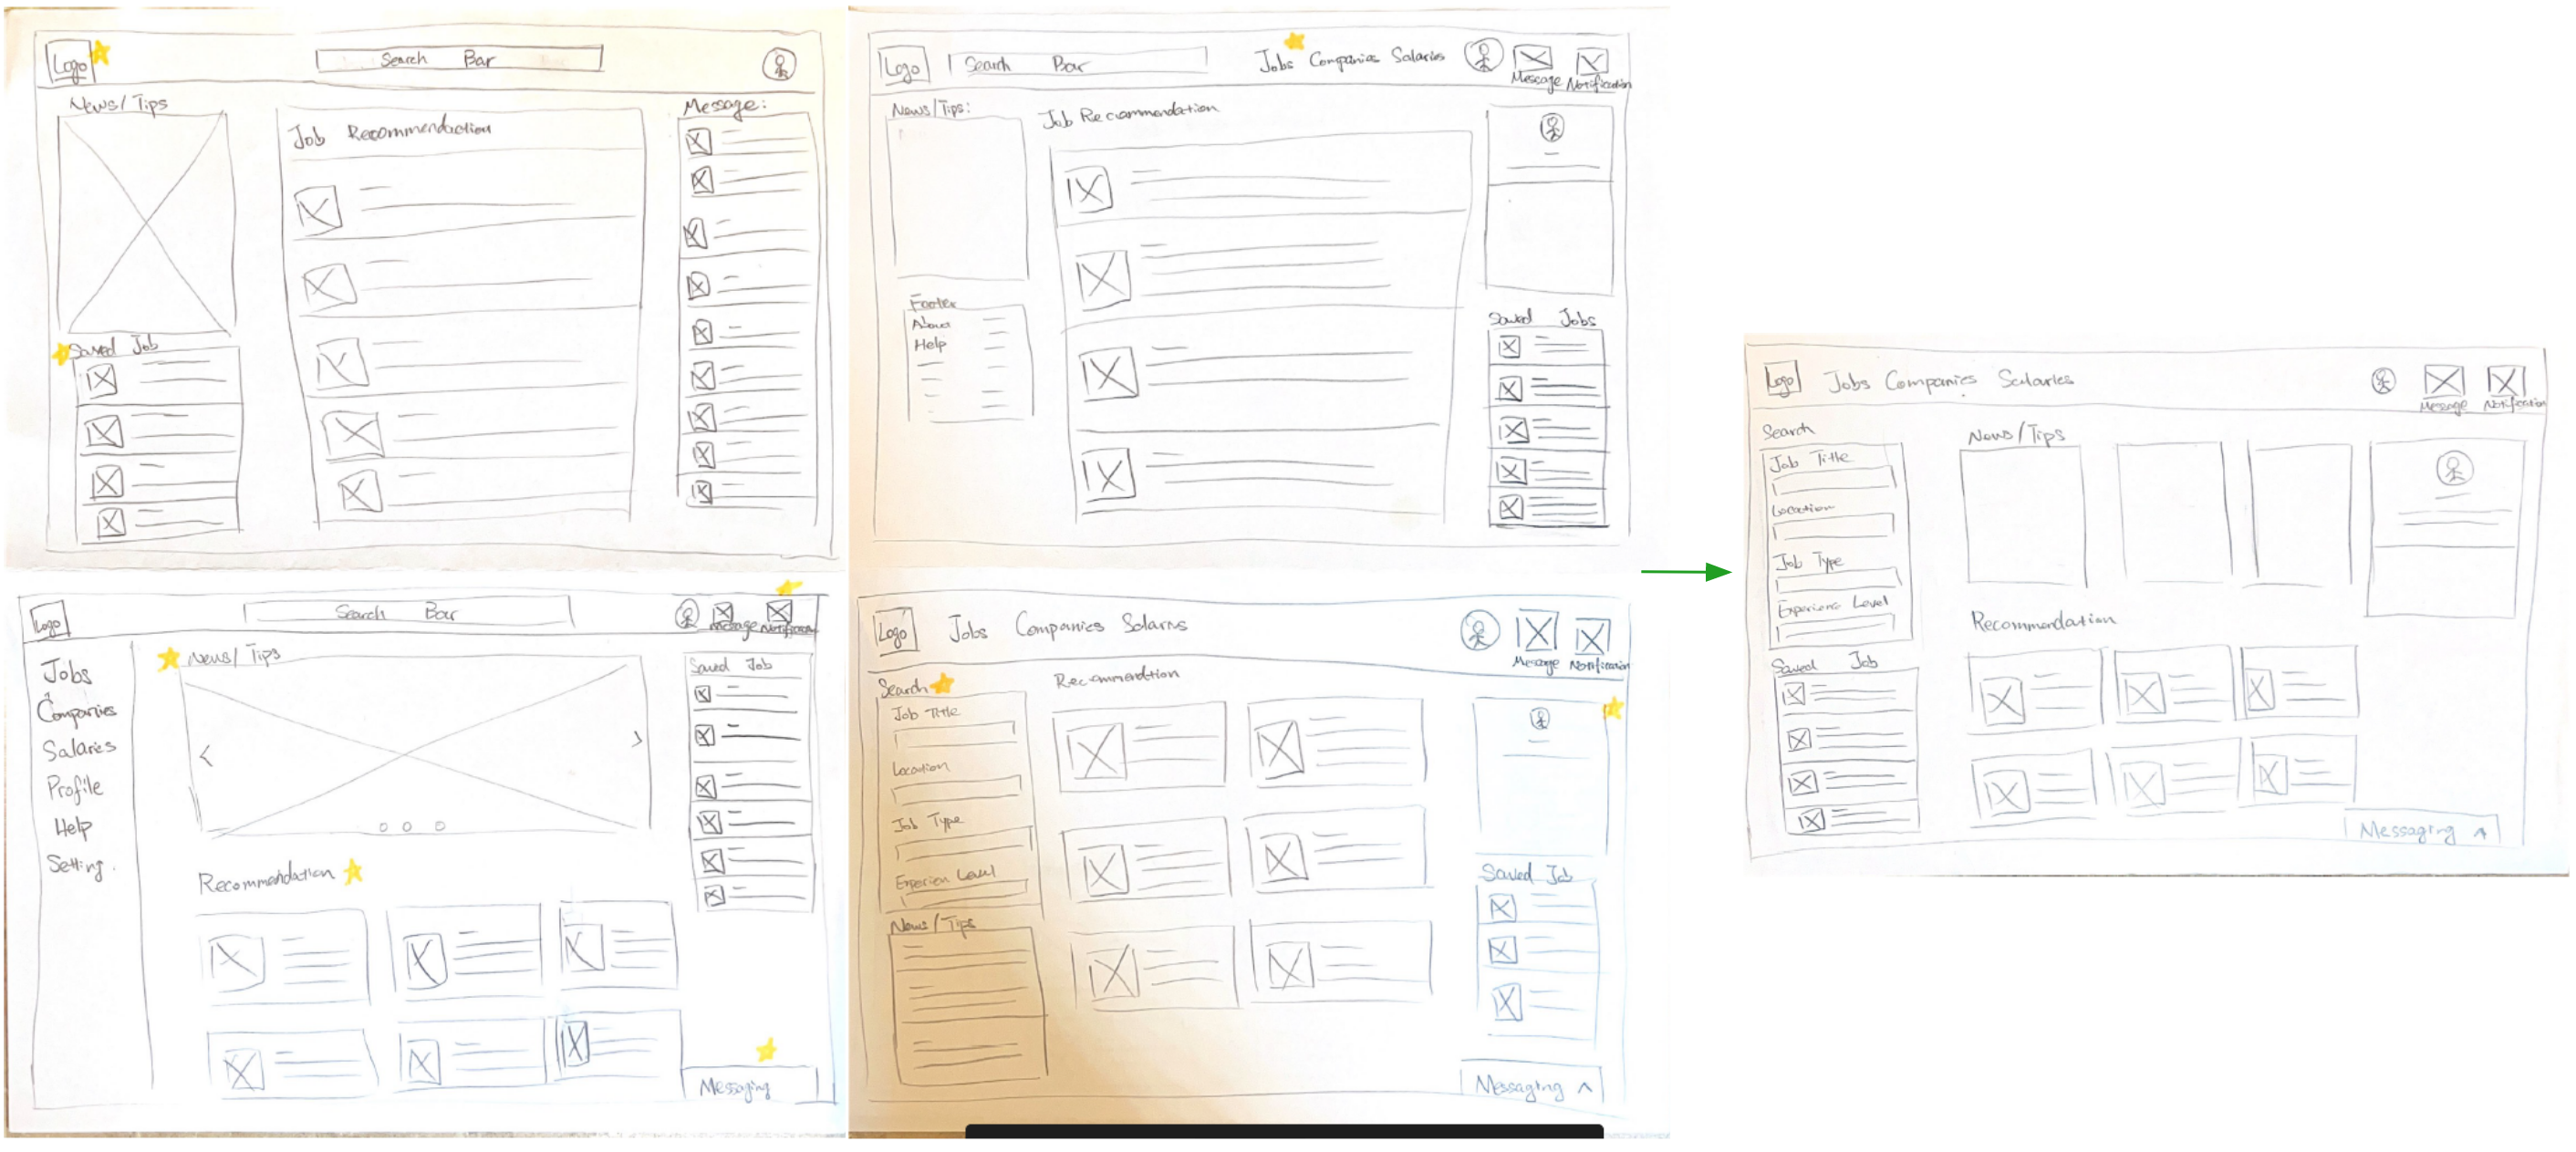 Logo
Search Bar
News/Tips
Job Recommendation
Message:
Saved Job
Logo
Search Bar
Jobs Companies Salaries
Message Notification
News/Tips:
Job Recommendation
Footer
About
Help
Saved Jobs
Logo
Search Bar
Message Notification
Jobs
Companies
Salaries
Profile
Help
Setting.
News/ Tips
Saved Job
Recommendation
Messaging
Logo
Jobs Companies Salaries
Message Notification
Search
Job Title
Location
Job Type
Experien Level
News/Tips
Recommendation
Saved Job
Messaging ^
Logo
Jobs Companies Salaries
Message Notification
Search
Job Title
Location
Job Type
Experience Level
Saved Job
News/Tips
Recommendation
Messaging ^